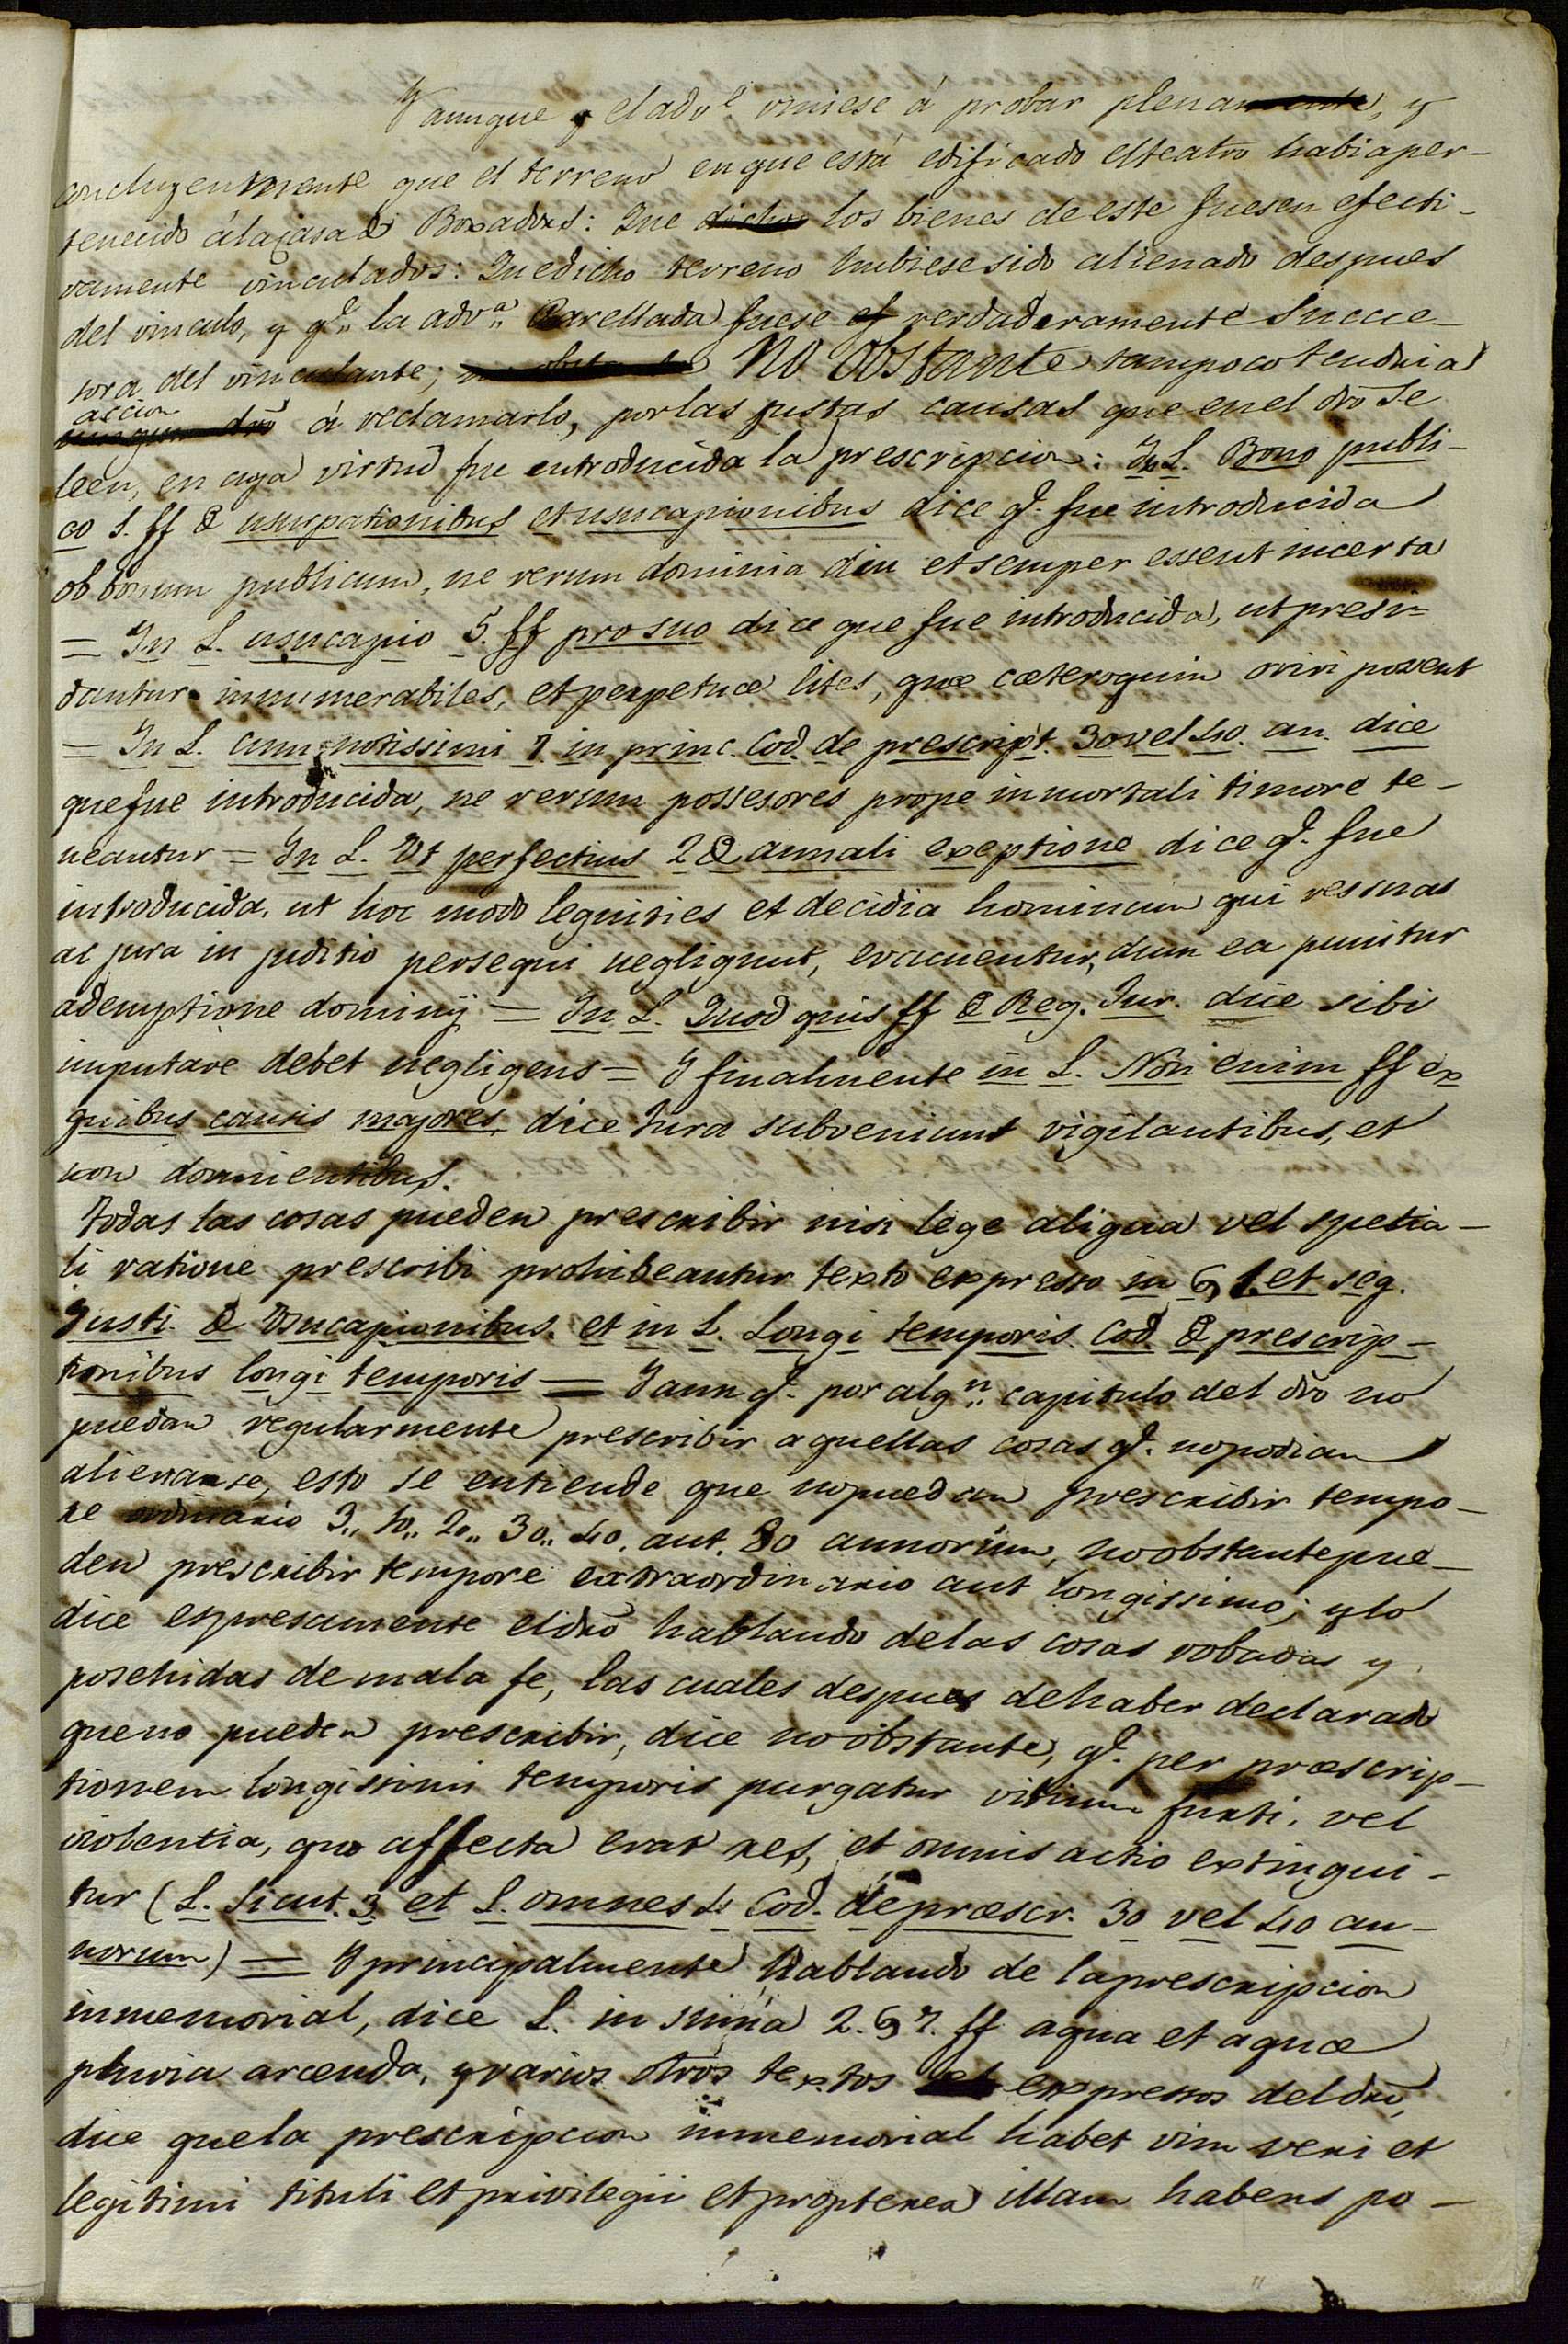 Y aunque el adv.º viniese á probar plenamente, y
concluyentemente que el terreno en que está edificado el teatro habia per-
tenecido á la casa de Boxadors: Que dichos los bienes de este fuesen efecti-
vamente vinculados: Que dicho terreno hubiese sido alienado despues
del vinculo, y q.e la adv.a Parellada fuese verdaderamente succe-
sora del vinculante; no obstante No obstante tampoco tendria
accion
ningun dro á reclamarlo, por las justas causas que en el dro se
leen, en cuya virtud fue introducida la prescripcion: In L. Bono publi-
co 1. ff de usurpationibus et usucapionibus dice q.e fue introducida
ob bonum publicum, ne rerum dominia diu et semper essent incerta
= In L. usucapio 5. ff pro suo dice que fue introducida, ut presin-
dantur innumerabiles, et perpetuæ lites, quæ cæteroquin oriri possent
= In L. cum notissimi 7. in princ. Cod. de prescript. 30 vel 40. an. dice
que fue introducida, ne rerum possesores prope inmortali timore te-
neantur = In L. Ut perfectius 2 de annali exeptione dice q.e fue
introducida, ut hoc modo legnities et decidia hominum qui res suas
ac jura in juditio persequi neglignut, evacuentur, dum ea punitur
ademptione dominij = In L. Quod quis ff de Reg. Jur. dice sibi
imputare debet negligens = Y finalmente in L. Non enim ff ex
quibus causis majores, dice Jura subveniunt vigilantibus, et
non dormientibus.
Todas las cosas pueden prescribir nisi lege aliqua vel spetia-
li ratione prescribi prohibeantur texto expresso in § 1. et seg.
Insti. de Usucapionibus. et in L. Longi temporis. Cod. de prescrip-
tionibus longi temporis = Y aun q.e por alg.n capitulo del dro no
puedan regularmente prescribir aquellas cosas q.e no podian
alienarse, esto se entiende que no puedan prescribir tempo-
re ordinario 3,, 10,, 20,, 30,, 40. aut. 80 annorum, no obstante pue-
den prescribir tempore extraordinario aut longissimo; y lo
dice expresamente el dro hablando de las cosas robadas y
posehidas de mala fe, las cuales despues de haber declarado
que no pueden prescribir, dice no obstante, q.e per præscrip-
tionem longissimi temporis purgatur vitium furti, vel
violentia, quo affecta erat res, et omnis actio extingui-
tur (L. Sicut. 3 et L. omnes 4 Cod. de præscr. 30 vel 40 an-
norum) = Y principalmente hablando de la prescripcion
inmemorial, dice L. in summa 2. § 7. ff aqua et aquæ
pluvia arcenda, y varios otros textos expressos del dro,
dice que la prescripcion inmemorial habet vim veri et
legitimi tituli et privilegii et propterea illam habens po-